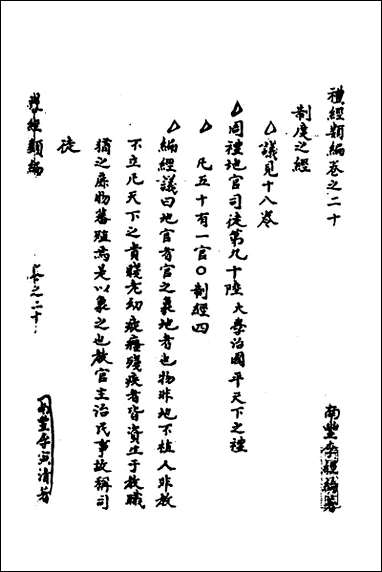 禮經類編卷之二十
南豐李經綸著
制度之經
△議見十八卷
△周禮地官司徒第九十陸 大學治國平天下之禮
△凡五十有一官〇制經四
△編經議曰地官者官之象地者也物非地不植人非教
不立凡天下之貴賤老幼疲癃殘疾者皆資生于教職
猶之庶物蕃殖焉是以象之也教官主治民事故稱司
徒
禮經類編
卷之二十
南豐李寅清著